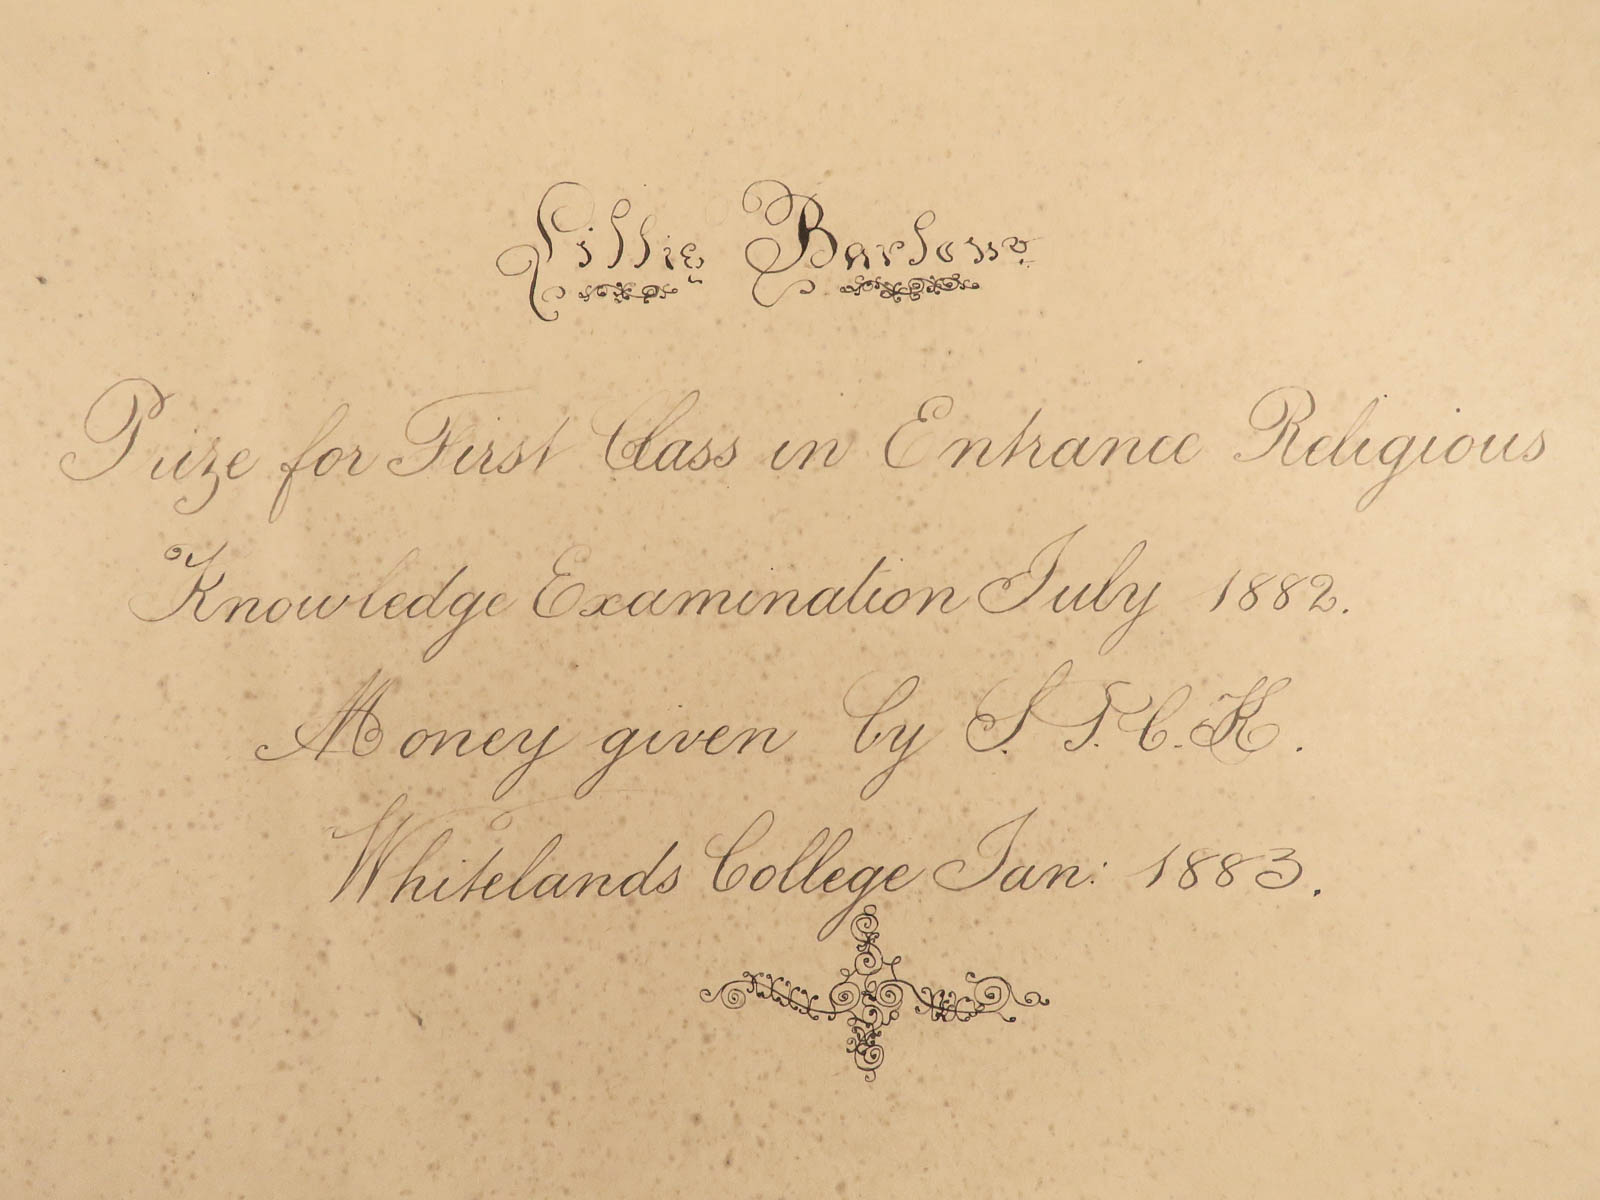 Lillie Barlow.
Prize for First Class in Entrance Religious
Knowledge Examination July 1882.
Money given by S.P.C.K.
Whitelands College Jan: 1883.